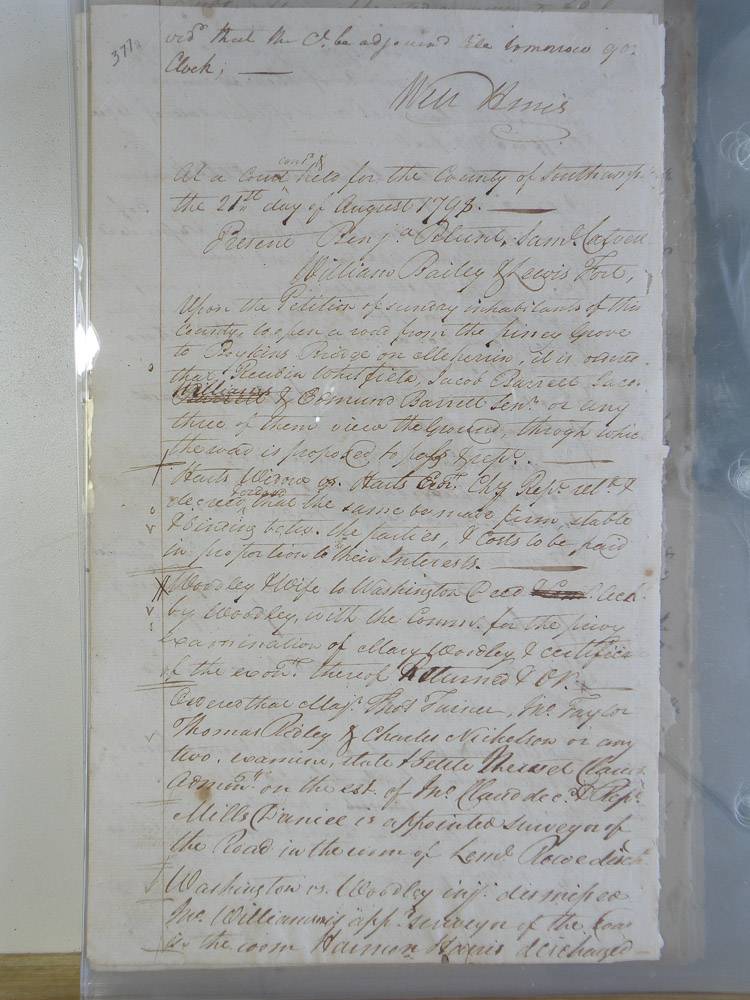 377
that the Ct. be adjourned till tomorrow 9 o.
Clock; —
Will Hines
cont.d &
At a Court held for the County of Southamp
the 21st day of August 1798. —
Present Benj.a Blunt, Sam.l Calvert
William Bailey & Lewis Fort,
Upon the Petition of sundry inhabitants of this
County, to open a road from the Piney Grove
to Boykins Bridge on Meherrin, it is ordered
that Reubin Whitfield, Jacob Barrett Jaco
Williams & Edmund Barrett Sen.r or any
three of them view the Ground, through whic
the road is proposed to pass & rep.t —
Harts vs. Harts Ex.r Chy Rep.t ret.d &
decreed that the same be made firm, stable
& binding betw. the parties, & Costs to be paid
in proportion to their Interests. —
Woodley & Wife to Washington Deed Ack.d
by Woodley, with the Comm.n for the privy
examination of Mary Woodley & certificate
of the exon. thereof Returned & OR. —
Ordered that Maj.r Tho.s Turner, Jno. Taylor
Thomas Ridley & Charles Nicholson or any
two, examine, state & settle Claud
Admon. on the est. of Jno. Claud dec.d & Rep.t
Mills Daniel is appointed surveyor of
the Road in the room of Lem.l Rowe disch.
Washington vs. Woodley inj. dismissed
Jno. Williamson is app.d surveyor of the road
in the room Harmon Harris discharged —